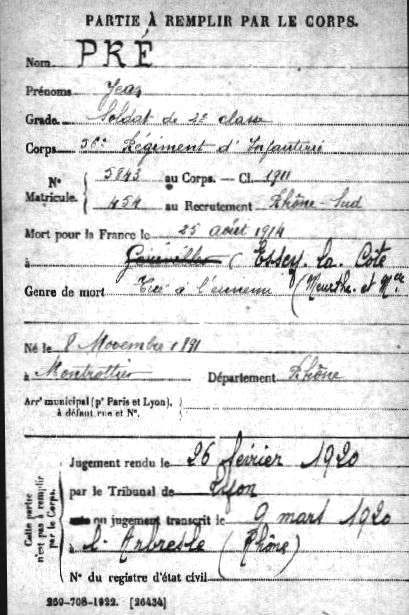 PARTIE À REMPLIR PAR LE CORPS.
Nom PRÉ
Prénoms Jean
Grade Soldat de 2e classe
Corps 36e Régiment d'Infanterie
N° Matricule. 5843 au Corps. — Cl. 1911
454 au Recrutement Rhône-Sud
Mort pour la France le 25 août 1914
à (Essey-la-Côte
Genre de mort Tué à l'ennemi (Meurthe-et-Mlle
Né le 8 Novembre 1891
à Montrottier Département Rhône
Arrt municipal (pr Paris et Lyon), à défaut rue et N°.
Cette partie n'est pas à remplir par le Corps.
Jugement rendu le 26 février 1920
par le Tribunal de Lyon
ou jugement transcrit le 9 mars 1920
à l'Arbresle (Rhône)
N° du registre d'état civil
269-708-1922. [26434]